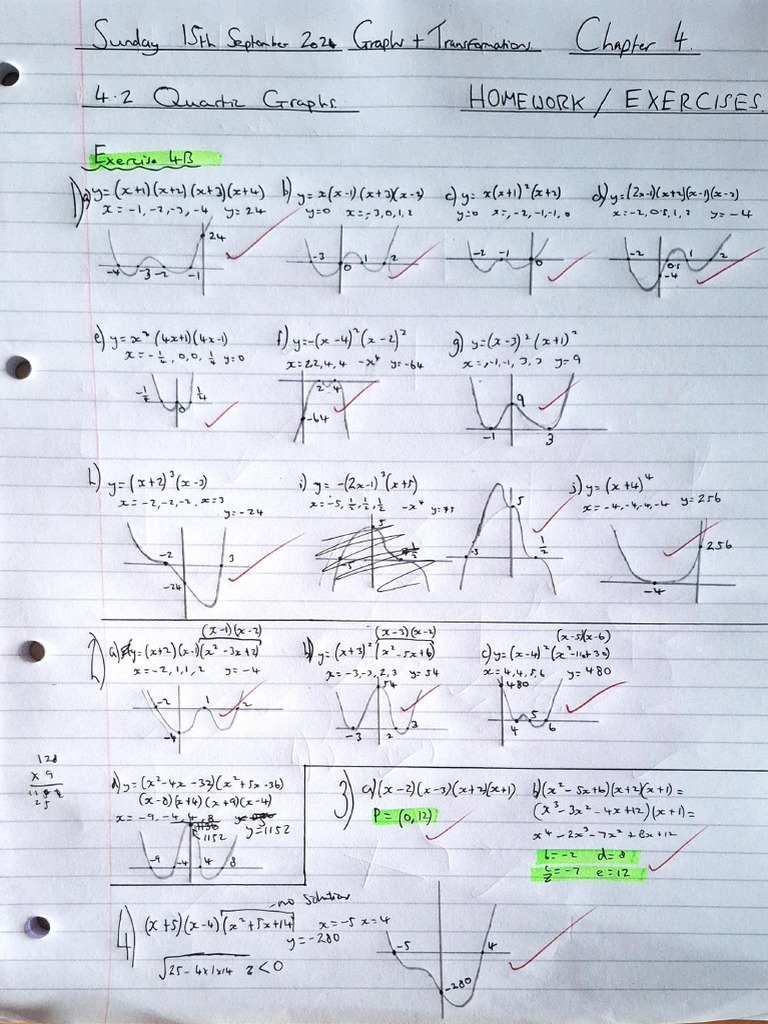 Sunday 15th September 2024 Graphs + Transformations. Chapter 4.
4.2 Quartic Graphs HOMEWORK / EXERCISES.
Exercise 4B
1) a) y=(x+1)(x+2)(x+3)(x+4) b) y=x(x-1)(x+3)(x-2) c) y=x(x+1)²(x+2) d) y=(2x-1)(x+2)(x-1)(x-2)
x=-1,-2,-3,-4 y=24 y=0 x=-3,0,1,2 y=0 x=,-2,-1,-1,0 x=-2,0.5,1,2 y=-4
24 -4 -3 -2 -1 -3 0 1 2 -2 -1 0 -2 0.5 1 2 -4
e) y=x²(4x+1)(4x-1) f) y=-(x-4)²(x-2)² g) y=(x-3)²(x+1)²
x=-¼,0,0,¼ y=0 x=2,2,4,4 -x⁴ y=-64 x=,-1,-1,3,3 y=9
-¼ 0 ¼ 2 4 -64 9 -1 3
h) y=(x+2)³(x-3) i) y=-(2x-1)³(x+5) j) y=(x+4)⁴
x=-2,-2,-2, x=3 x=-5,½,½,½ -x⁴ x=-4,-4,-4,-4 y=256
y=-24
-2 3 -24 5 -5 ½ 5 ½ 256 -4
(x-1)(x-2) (x-3)(x-2) (x-5)(x-6)
2) a) y=(x+2)(x-1)(x²-3x+2) b) y=(x+3)²(x²-5x+6) c) y=(x-4)²(x²-11x+30)
x=-2,1,1,2 y=-4 x=-3,-3,2,3 y=54 x=4,4,5,6 y=480
-2 1 2 -4 54 -3 2 3 480 4 5 6
128
x 9
d) y=(x²-4x-32)(x²+5x-36)
(x-8)(x+4)(x+9)(x-4)
x=-9,-4,4,8 y=1152
1152
-9 -4 4 8
3) a) (x-2)(x-3)(x+2)(x+1) b) (x²-5x+6)(x+2)(x+1)=
P=(0,12) (x³-3x²-4x+12)(x+1)=
x⁴-2x³-7x²+8x+12
b=-2 d=8
c=-7 e=12
no solutions
4) (x+5)(x-4)(x²+5x+14) x=-5 x=4
y=-280
√25-4x1x14 <0
-5 4 -280